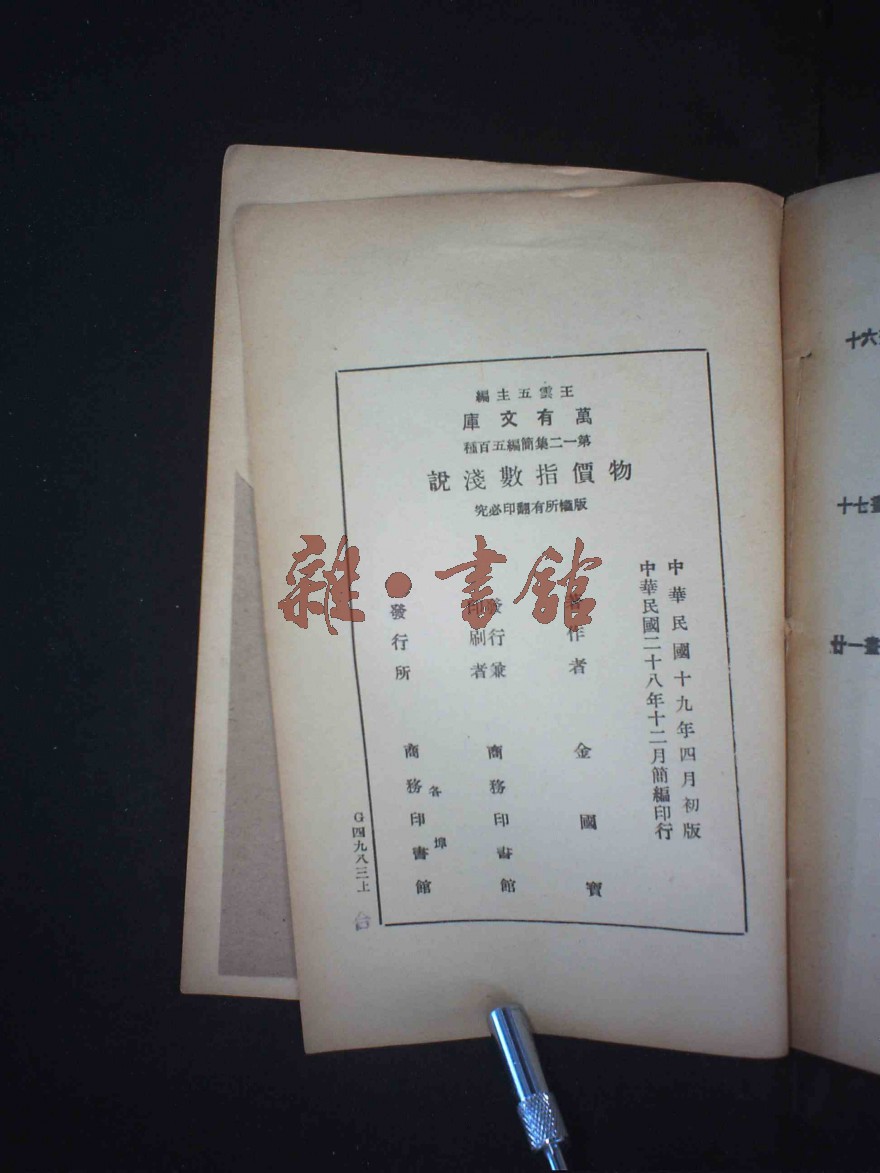 王雲五主編
萬有文庫
第一二集簡編五百種
物價指數淺說
版權所有翻印必究
中華民國十九年四月初版
中華民國二十八年十二月簡編印行
著作者 金國寶
發行兼印刷者 商務印書館
發行所 各埠商務印書館
G四九八三上
雜·書館
十六
十七畫
廿一畫